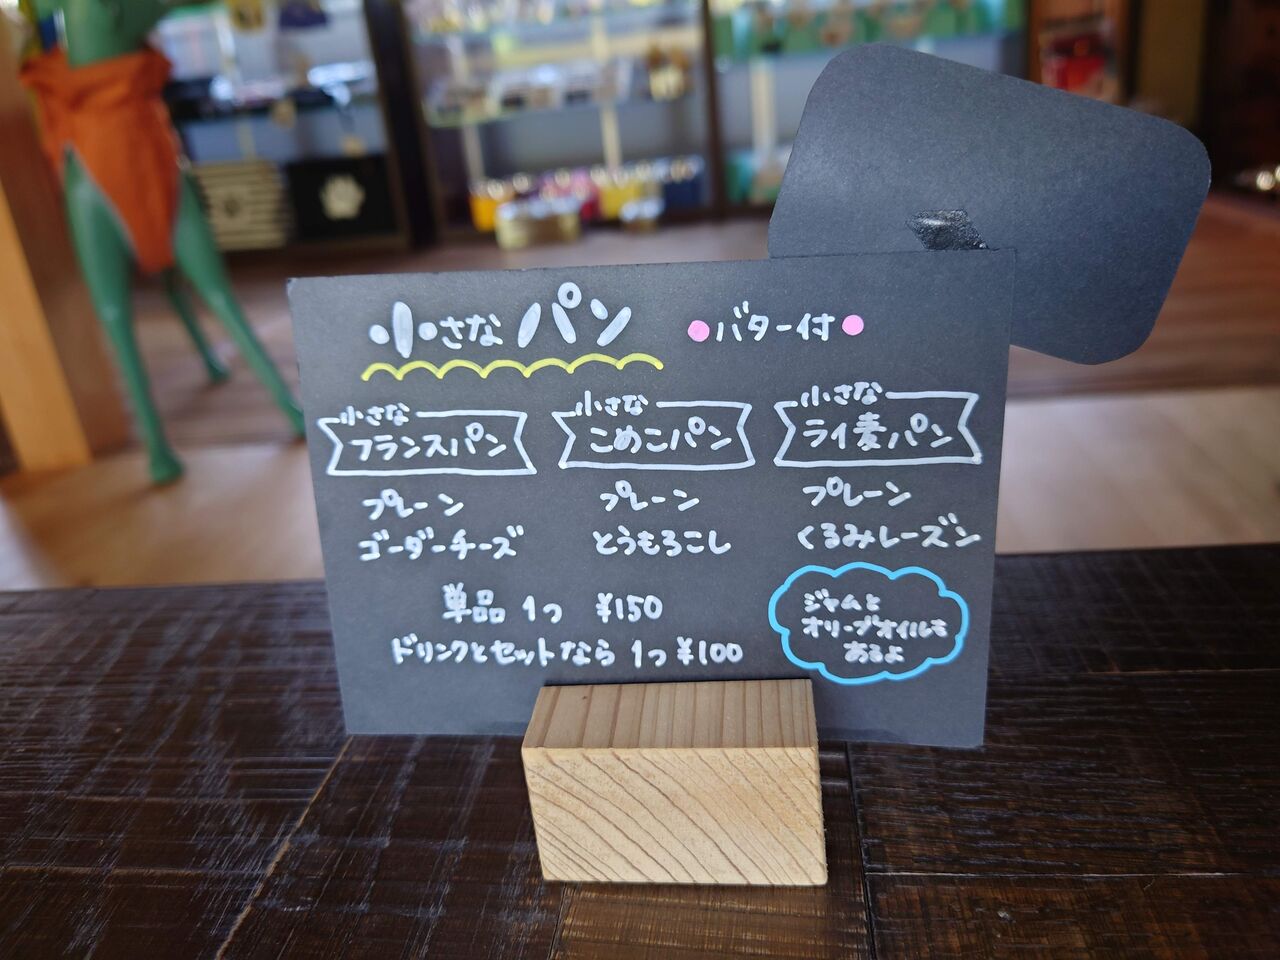 小さなパン ●バター付●
小さな
フランスパン
プレーン
ゴーダーチーズ
小さな
こめこパン
プレーン
とうもろこし
小さな
ライ麦パン
プレーン
くるみレーズン
単品 1つ ¥150
ドリンクとセットなら 1つ¥100
ジャムと
オリーブオイルも
あるよ